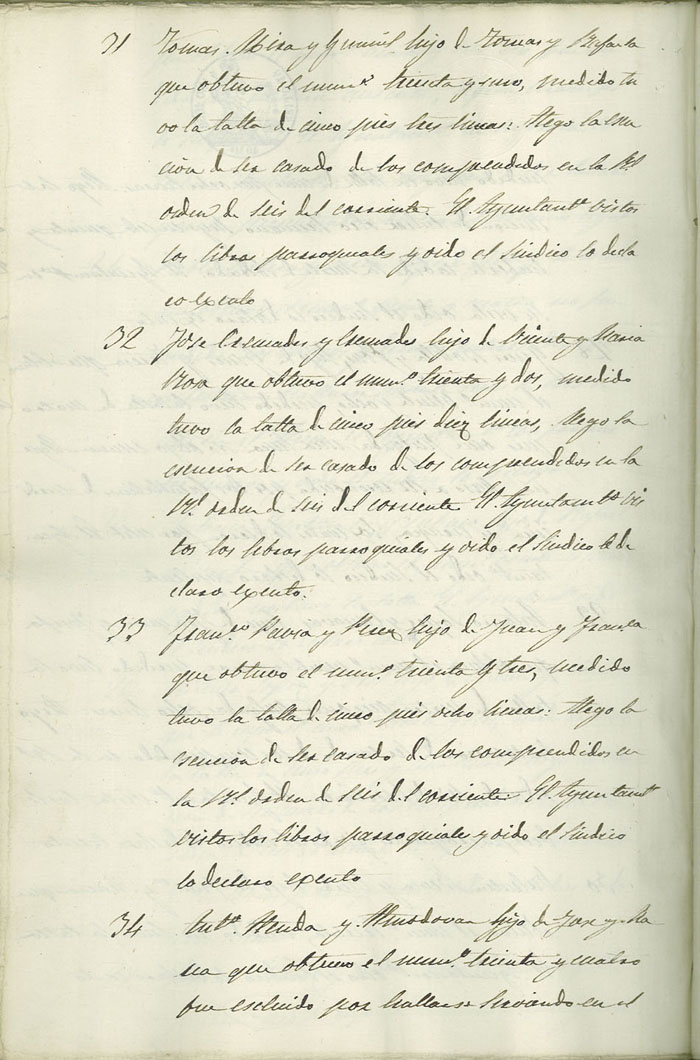 31 Tomas Mira y hijo de Tomas y Josefa
que obtuvo el num.º treinta y uno, medido tu
vo la talla de cinco pies tres lineas: Alego la esen
cion de ser casado de los comprendidos en la R.l
orden de seis del corriente. El Ayuntam.to vistos
los libros parroquiales y oido el Sindico lo decla
ro exento
32 Jose Cremades y Cremades hijo de Vicente y Maria
Rosa que obtuvo el num.º treinta y dos, medido
tuvo la talla de cinco pies diez lineas, Alego la
esencion de ser casado de los comprendidos en la
R.l orden de seis del corriente El Ayuntam.to vis
tos los libros parroquiales y oido el Sindico le de
claro exento.
33 Fran.co y Perez hijo de Juan y Fran.ca
que obtuvo el num.º treinta y tres, medido
tuvo la talla de cinco pies ocho lineas: Alego la
esencion de ser casado de los comprendidos en
la R.l orden de seis del corriente El Ayuntam.to
vistos los libros parroquiales y oido el Sindico
lo declaro exento
34 Ant.º y Almodovar hijo de Jose y Ma
ria que obtuvo el num.º treinta y cuatro
fue escluido por hallarse sirviendo en el